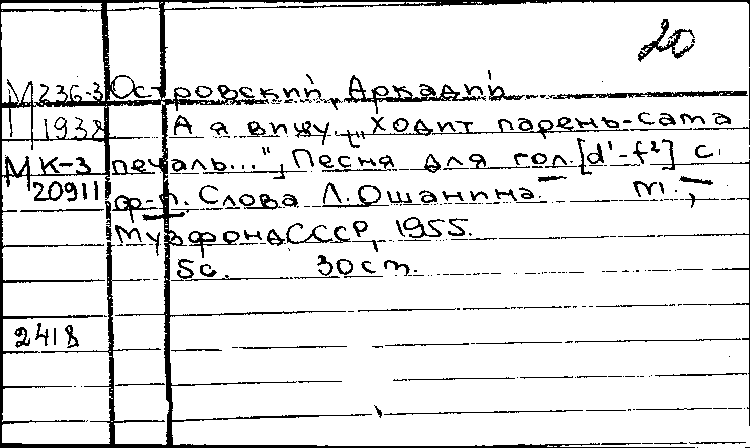 20
М 236-3 Островский, Аркадий
1938 А я вижу. ["Ходит парень-сама
М К-3 печаль..."] Песня для гол. [d¹-f²] с.
20911 ф-п. Слова Л. Ошанина. М.,
Музфонд СССР, 1955.
5с. 30 см.
2418